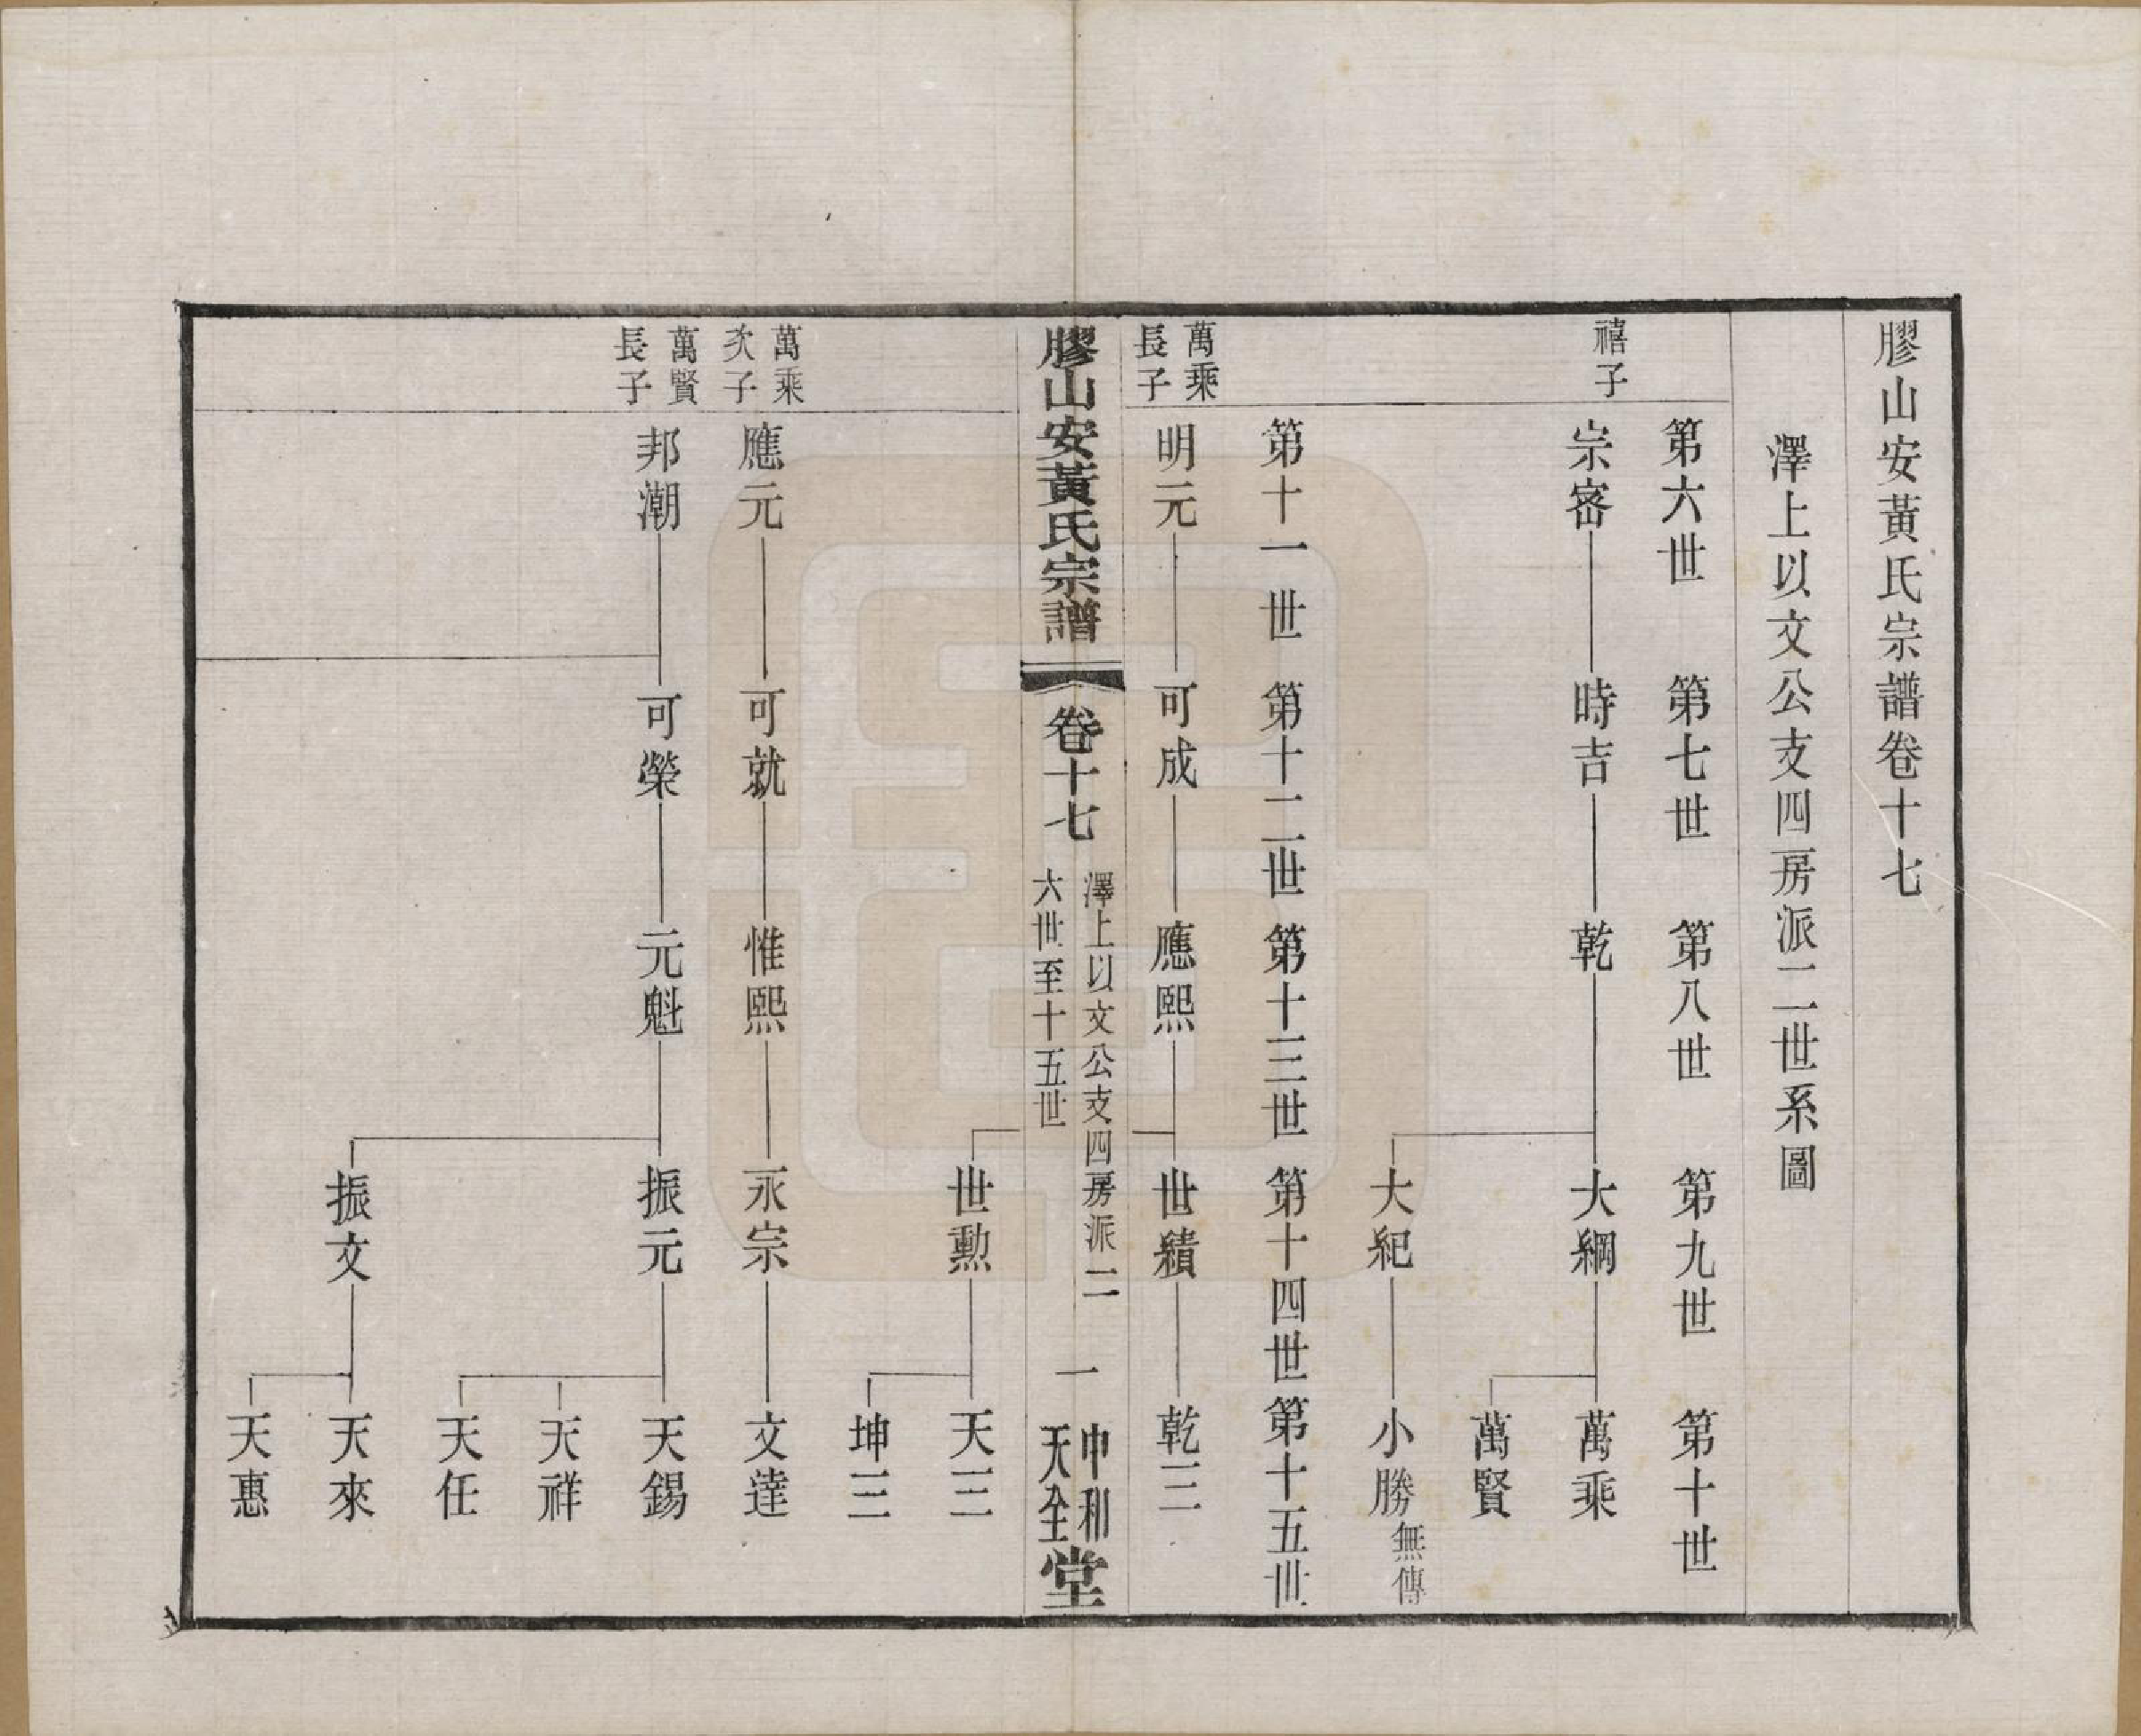 膠山安黃氏宗譜卷十七
澤上以文公支四房派二世系圖
第六世 第七世 第八世 第九世 第十世
禧子
宗密 時吉 乾 大綱 萬乘
萬賢
大紀 小勝 無傳
第十一世 第十二世 第十三世 第十四世 第十五世
萬乘
長子
明元 可成 應熙 世績 乾三
膠山安黃氏宗譜 卷十七 澤上以文公支四房派二
六世至十五世
一
中和
天全
堂
世勳 天三
坤三
萬乘
次子
應元 可就 惟熙 永宗 文達
萬賢
長子
邦潮 可榮 元魁 振元 天錫
天祥
天任
振文 天來
天惠